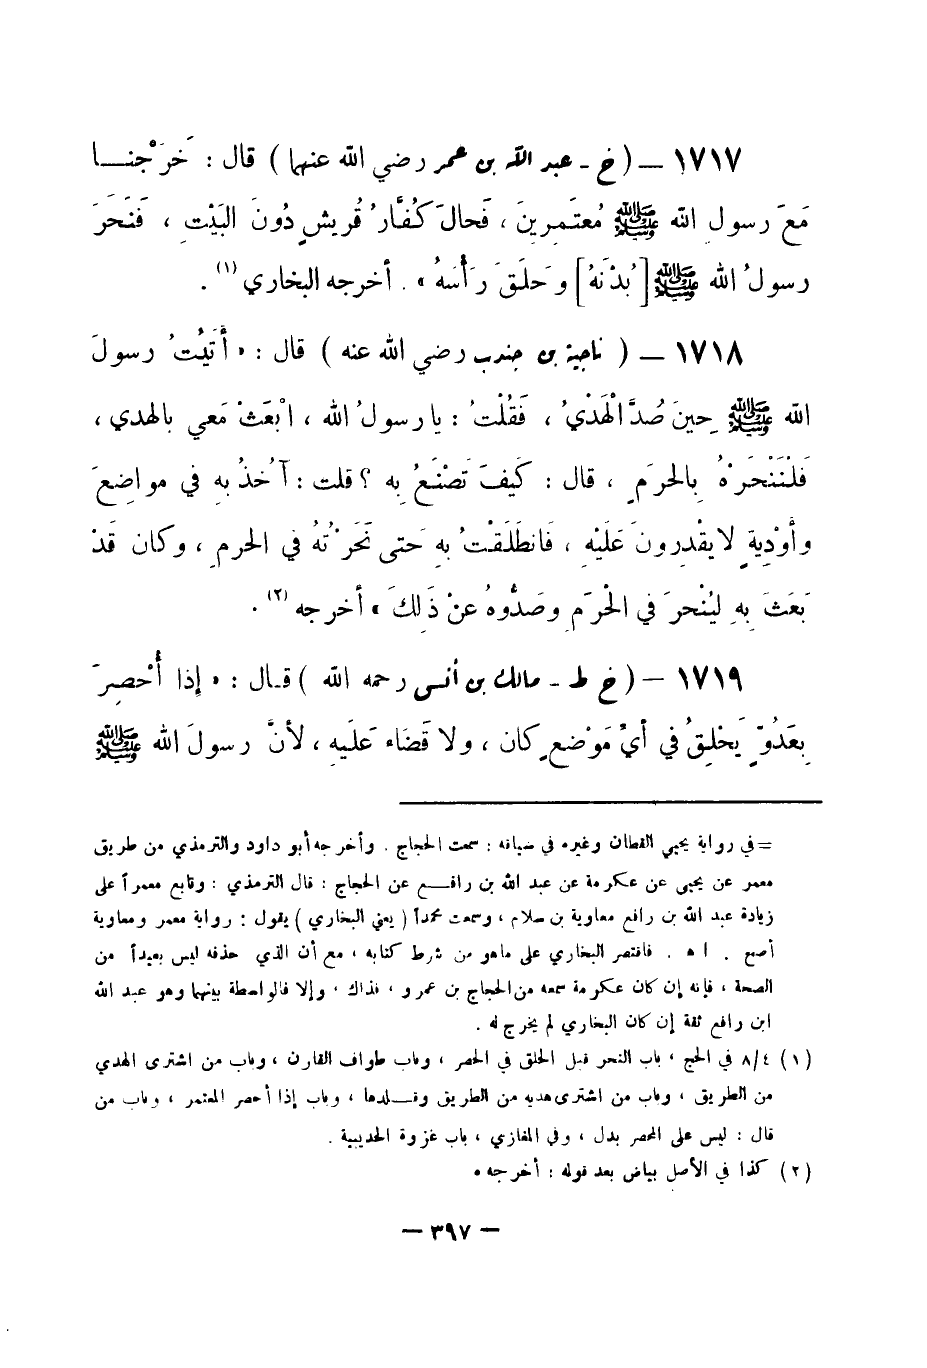 ١٧١٧ ــ ( خ ـ عبد الله بن عمر رضي الله عنهما ) قال : خَرَجْنــا
مَعَ رسولِ الله ﷺ مُعتَمِرينَ ، فَحالَ كُفَّارُ قُريشٍ دُونَ البَيْتِ ، فَنَحَرَ
رسولُ الله ﷺ [ بُدْنَهُ ] وَحَلَقَ رَأْسَهُ » . أخرجه البخاري (١) .
١٧١٨ ــ ( ناجية بن جندب رضي الله عنه ) قال : « أَتَيْتُ رسولَ
الله ﷺ حِينَ صُدَّ الْهَدْيُ ، فَقُلْتُ : يا رسولُ الله ، ابْعَثْ مَعي بالهدي ،
فَلْنَنْحَرْهُ بِالحرَمِ ، قال : كَيفَ تَصْنَعُ بِه ؟ قلت : آخُذُ بِهِ في مواضِعَ
وأَوْدِيةٍ لا يقْدِرونَ عَلَيْهِ ، فَانطَلَقْتُ بِهِ حَتى نَحَرْتُهُ في الحرمِ ، وكان قَدْ
بَعَثَ بِهِ لِيُنْحرَ في الْحرَمِ وصَدُّوهُ عنْ ذَلِكَ » أخرجه (٢) .
١٧١٩ ــ ( خ ط ـ مالك بن أنس رحمه الله ) قـال : « إِذا أُحْصِرَ
بِعَدُوٍّ يَحْلِقُ في أيِّ مَوْضعٍ كان ، ولا قَضَاء عَلَيهِ ، لأنَّ رسولَ الله ﷺ
= في رواية يحيى القطان وغيره في سياقه : سمعت الحجاج . وأخرجه أبو داود والترمذي من طريق
معمر عن يحيى عن عكرمة عن عبد الله بن رافـع عن الحجاج : قال الترمذي : وتابع معمراً على
زيادة عبد الله بن رافع معاوية بن سلام ، وسمعت محمداً ( يعني البخاري ) يقول : رواية معمر ومعاوية
أصح . ا ه . فاقتصر البخاري على ماهو من شرط كتابه ، مع أن الذي حذفه ليس بعيداً من
الصحة ، فإنه إن كان عكرمة سمعه من الحجاج بن عمرو ، فذاك ، وإلا فالواسطة بينهما وهو عبد الله
ابن رافع ثقة إن كان البخاري لم يخرج له .
(١) ٨/٤ في الحج ، باب النحر قبل الحلق في الحصر ، وباب طواف القارن ، وباب من اشترى الهدي
من الطريق ، وباب من اشترى هديه من الطريق وقـلدها ، وباب إذا أحصر المعتمر ، وباب من
قال : ليس على المحصر بدل ، وفي المغازي ، باب غزوة الحديبية .
(٢) كذا في الأصل بياض بعد قوله : أخرجه .
ــ ٣٩٧ ــ